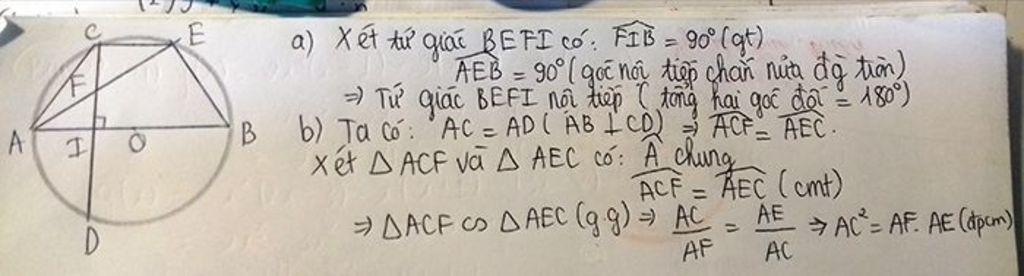 C E
F
A I O B
D
a) Xét tứ giác BEFI có: FIB = 90° (gt)
AEB = 90° (góc nội tiếp chắn nửa đg tròn)
⇒ Tứ giác BEFI nội tiếp (tổng hai góc đối = 180°)
b) Ta có: AC = AD (AB ⊥ CD) ⇒ ACF = AEC.
Xét △ ACF và △ AEC có: Â chung
ACF = AEC (cmt)
⇒ △ACF ∽ △AEC (g.g) ⇒ AC/AF = AE/AC ⇒ AC² = AF. AE (đpcm)